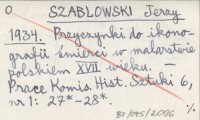 0
SZABLOWSKI Jerzy
1934. Przyczynki do ikono-
grafii śmierci w malarstwie
polskiem XVII wieku. —
Prace Komis. Hist. Sztuki 6,
nr 1: 27*-28*.
B1/095/2006